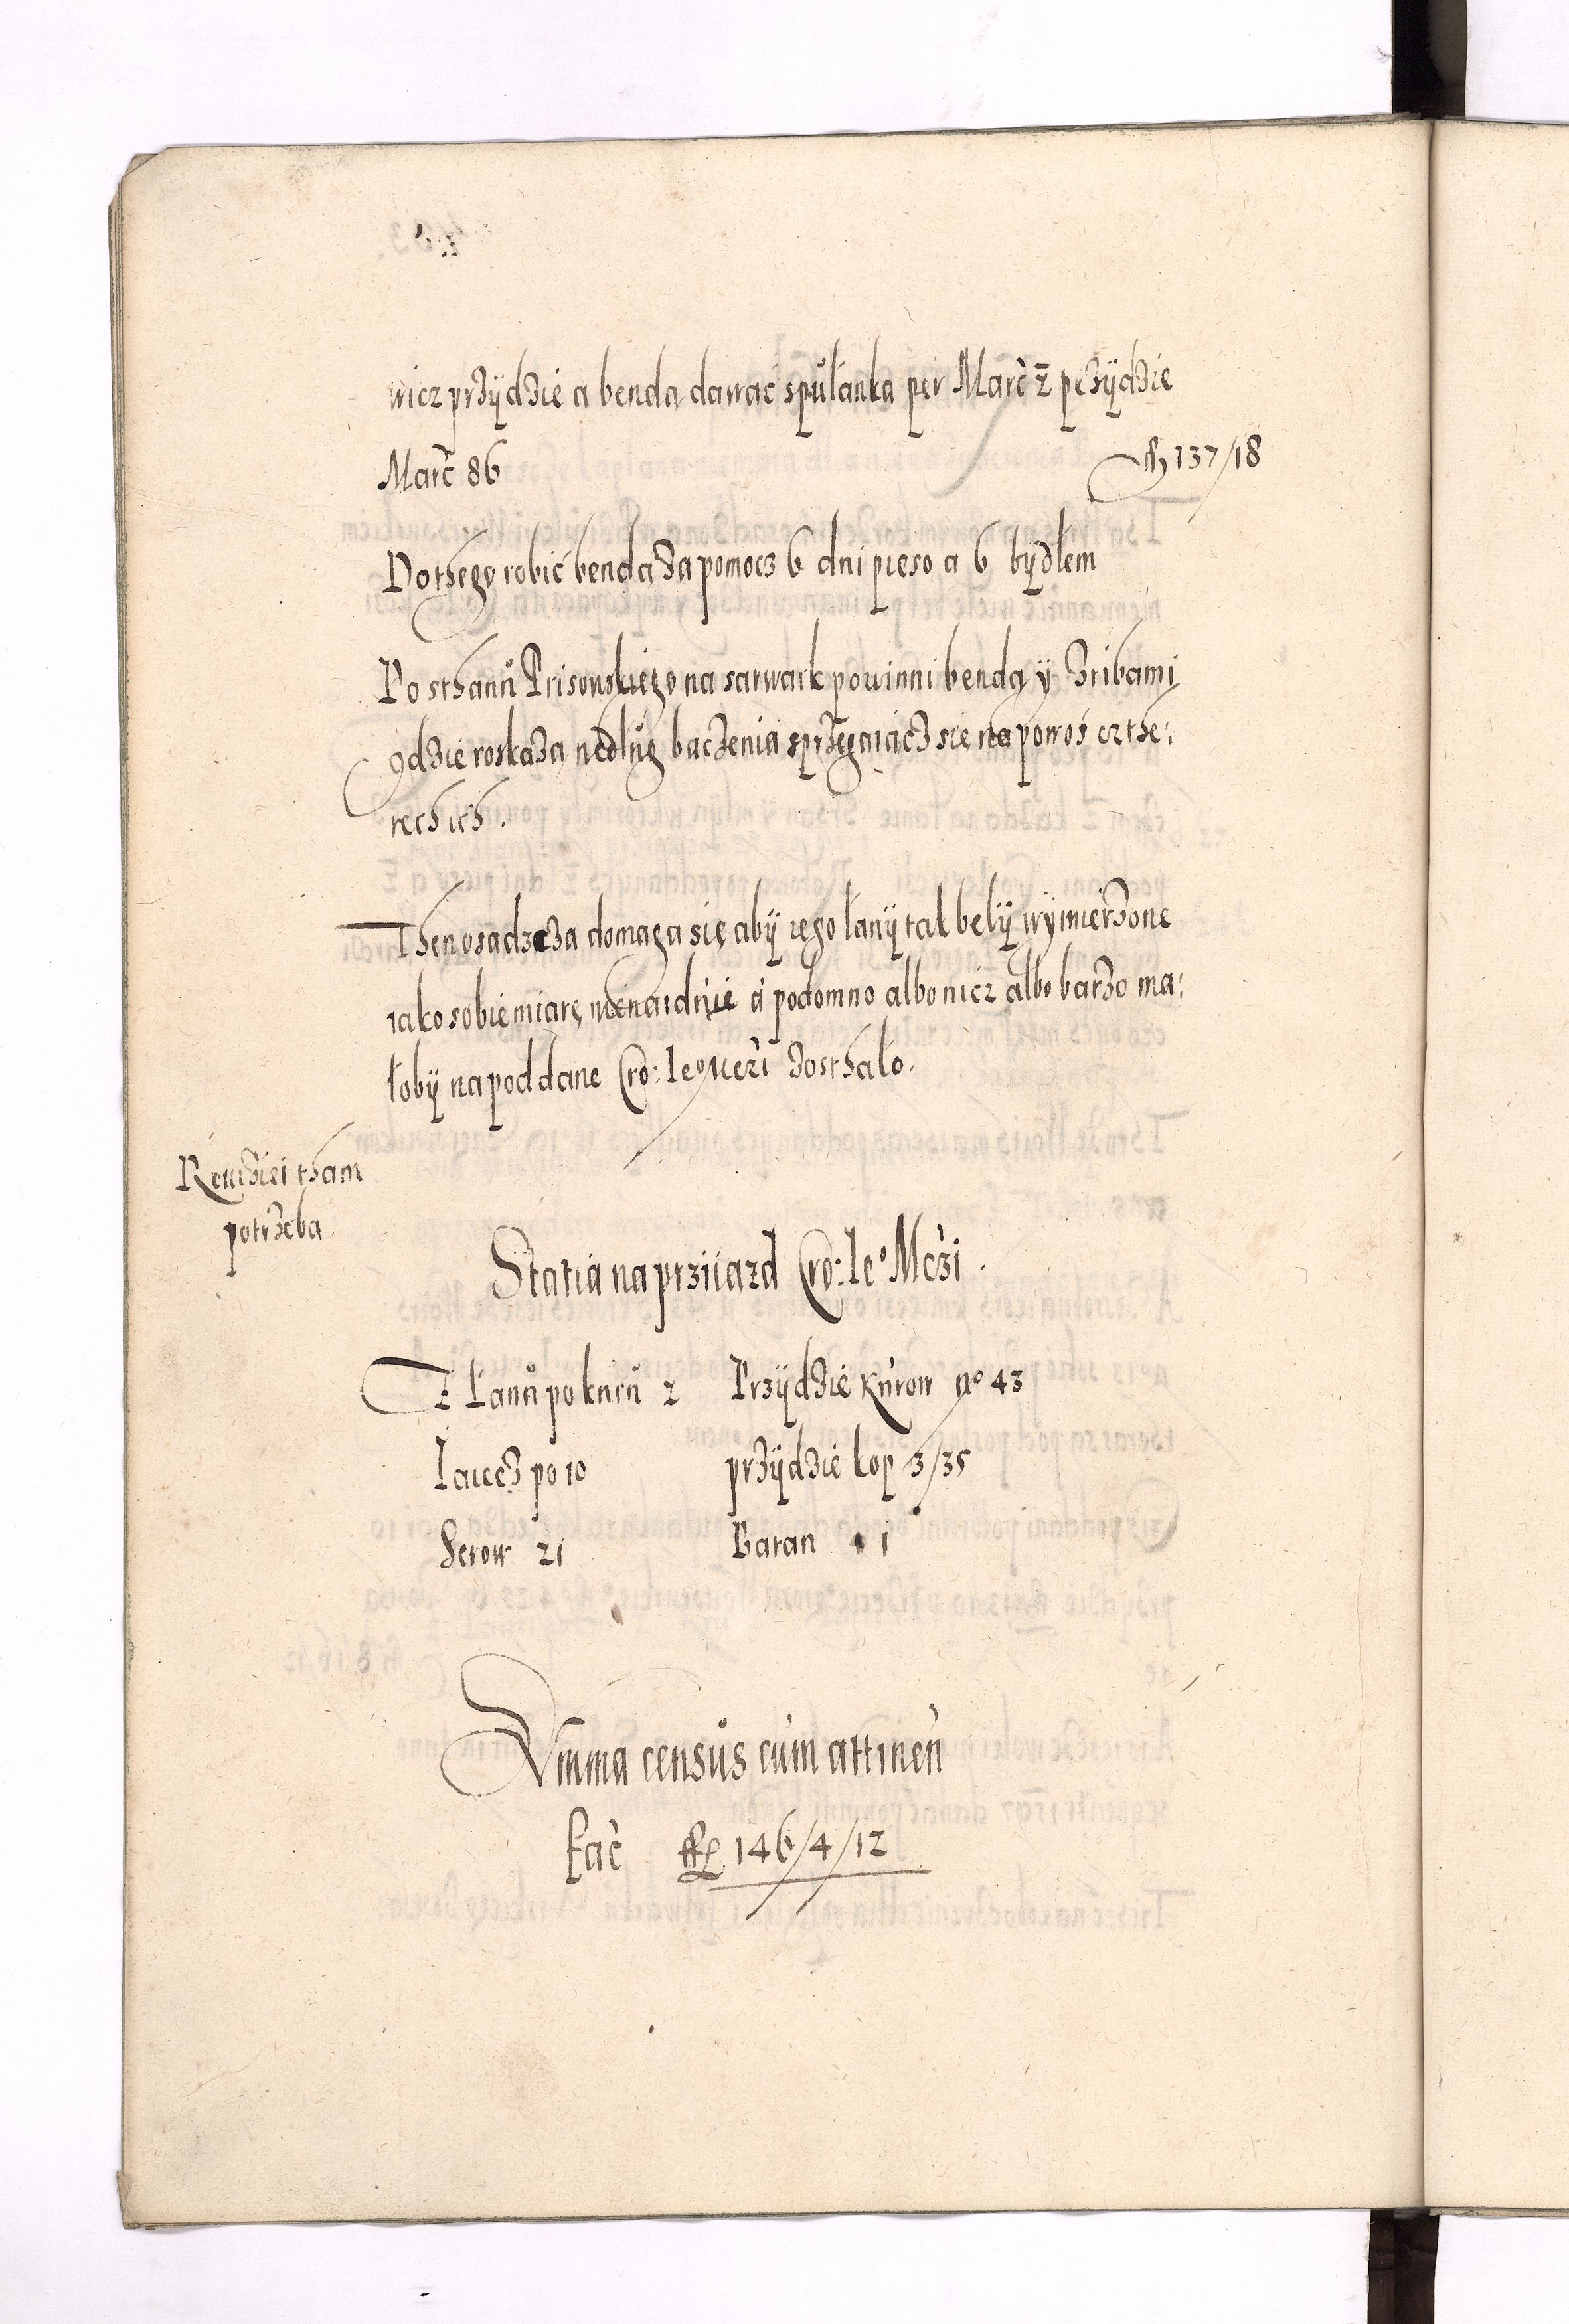 wicz przÿdzie a benda dawać spułanka per Marc 2 przÿdzie
Marc 86
fl 137/18
Dothego robić benda za pomocz 6 dni pieso a 6 bydłem
Po sthanu Prisowskiego na sarwark powinni benda ÿ zribami
gdzie roskaza wedlug baczenia sprzęgaiącz się na powos czthe:
rech ich.
Then osadzcza domaga się abÿ iego łanÿ tak belÿ wÿmierzone
iako sobie miarę menaidnie a podomno albo nicz albo barzo ma:
łobÿ na poddane Cro: Ieo Mczi zosthało.
Rewiziei tham
potrzeba
Statia na prziiazd Cro: Ieo Mczi.
Z Łanu po kuru 2 Przÿdzie Kurow no 43
Iaiecz po 10 przÿdzie kop 3/35
Serow 21 Baran 1
Summa census cum attinen
fac fl 146/4/12